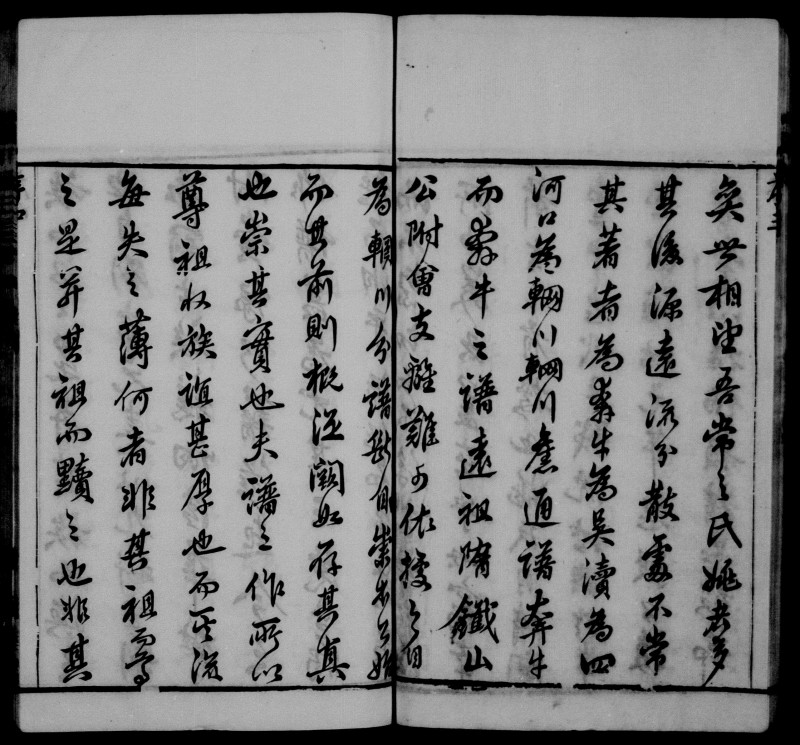 奕世相望吾常之氏姚者多
其後源遠流分散處不常
其著者為奔牛為吳瀆為四
河口為輞川輞川舊通譜奔牛
而奔牛之譜遠祖隋鐵山
公附會支離難可依據之自
為輞川分譜斷自崇本公始
而其前則概從闕如存其真
也崇其實也夫譜之作所以
尊祖收族誼甚厚也而其流
每失之薄何者非其祖而冒
之是弃其祖而黷之也非其